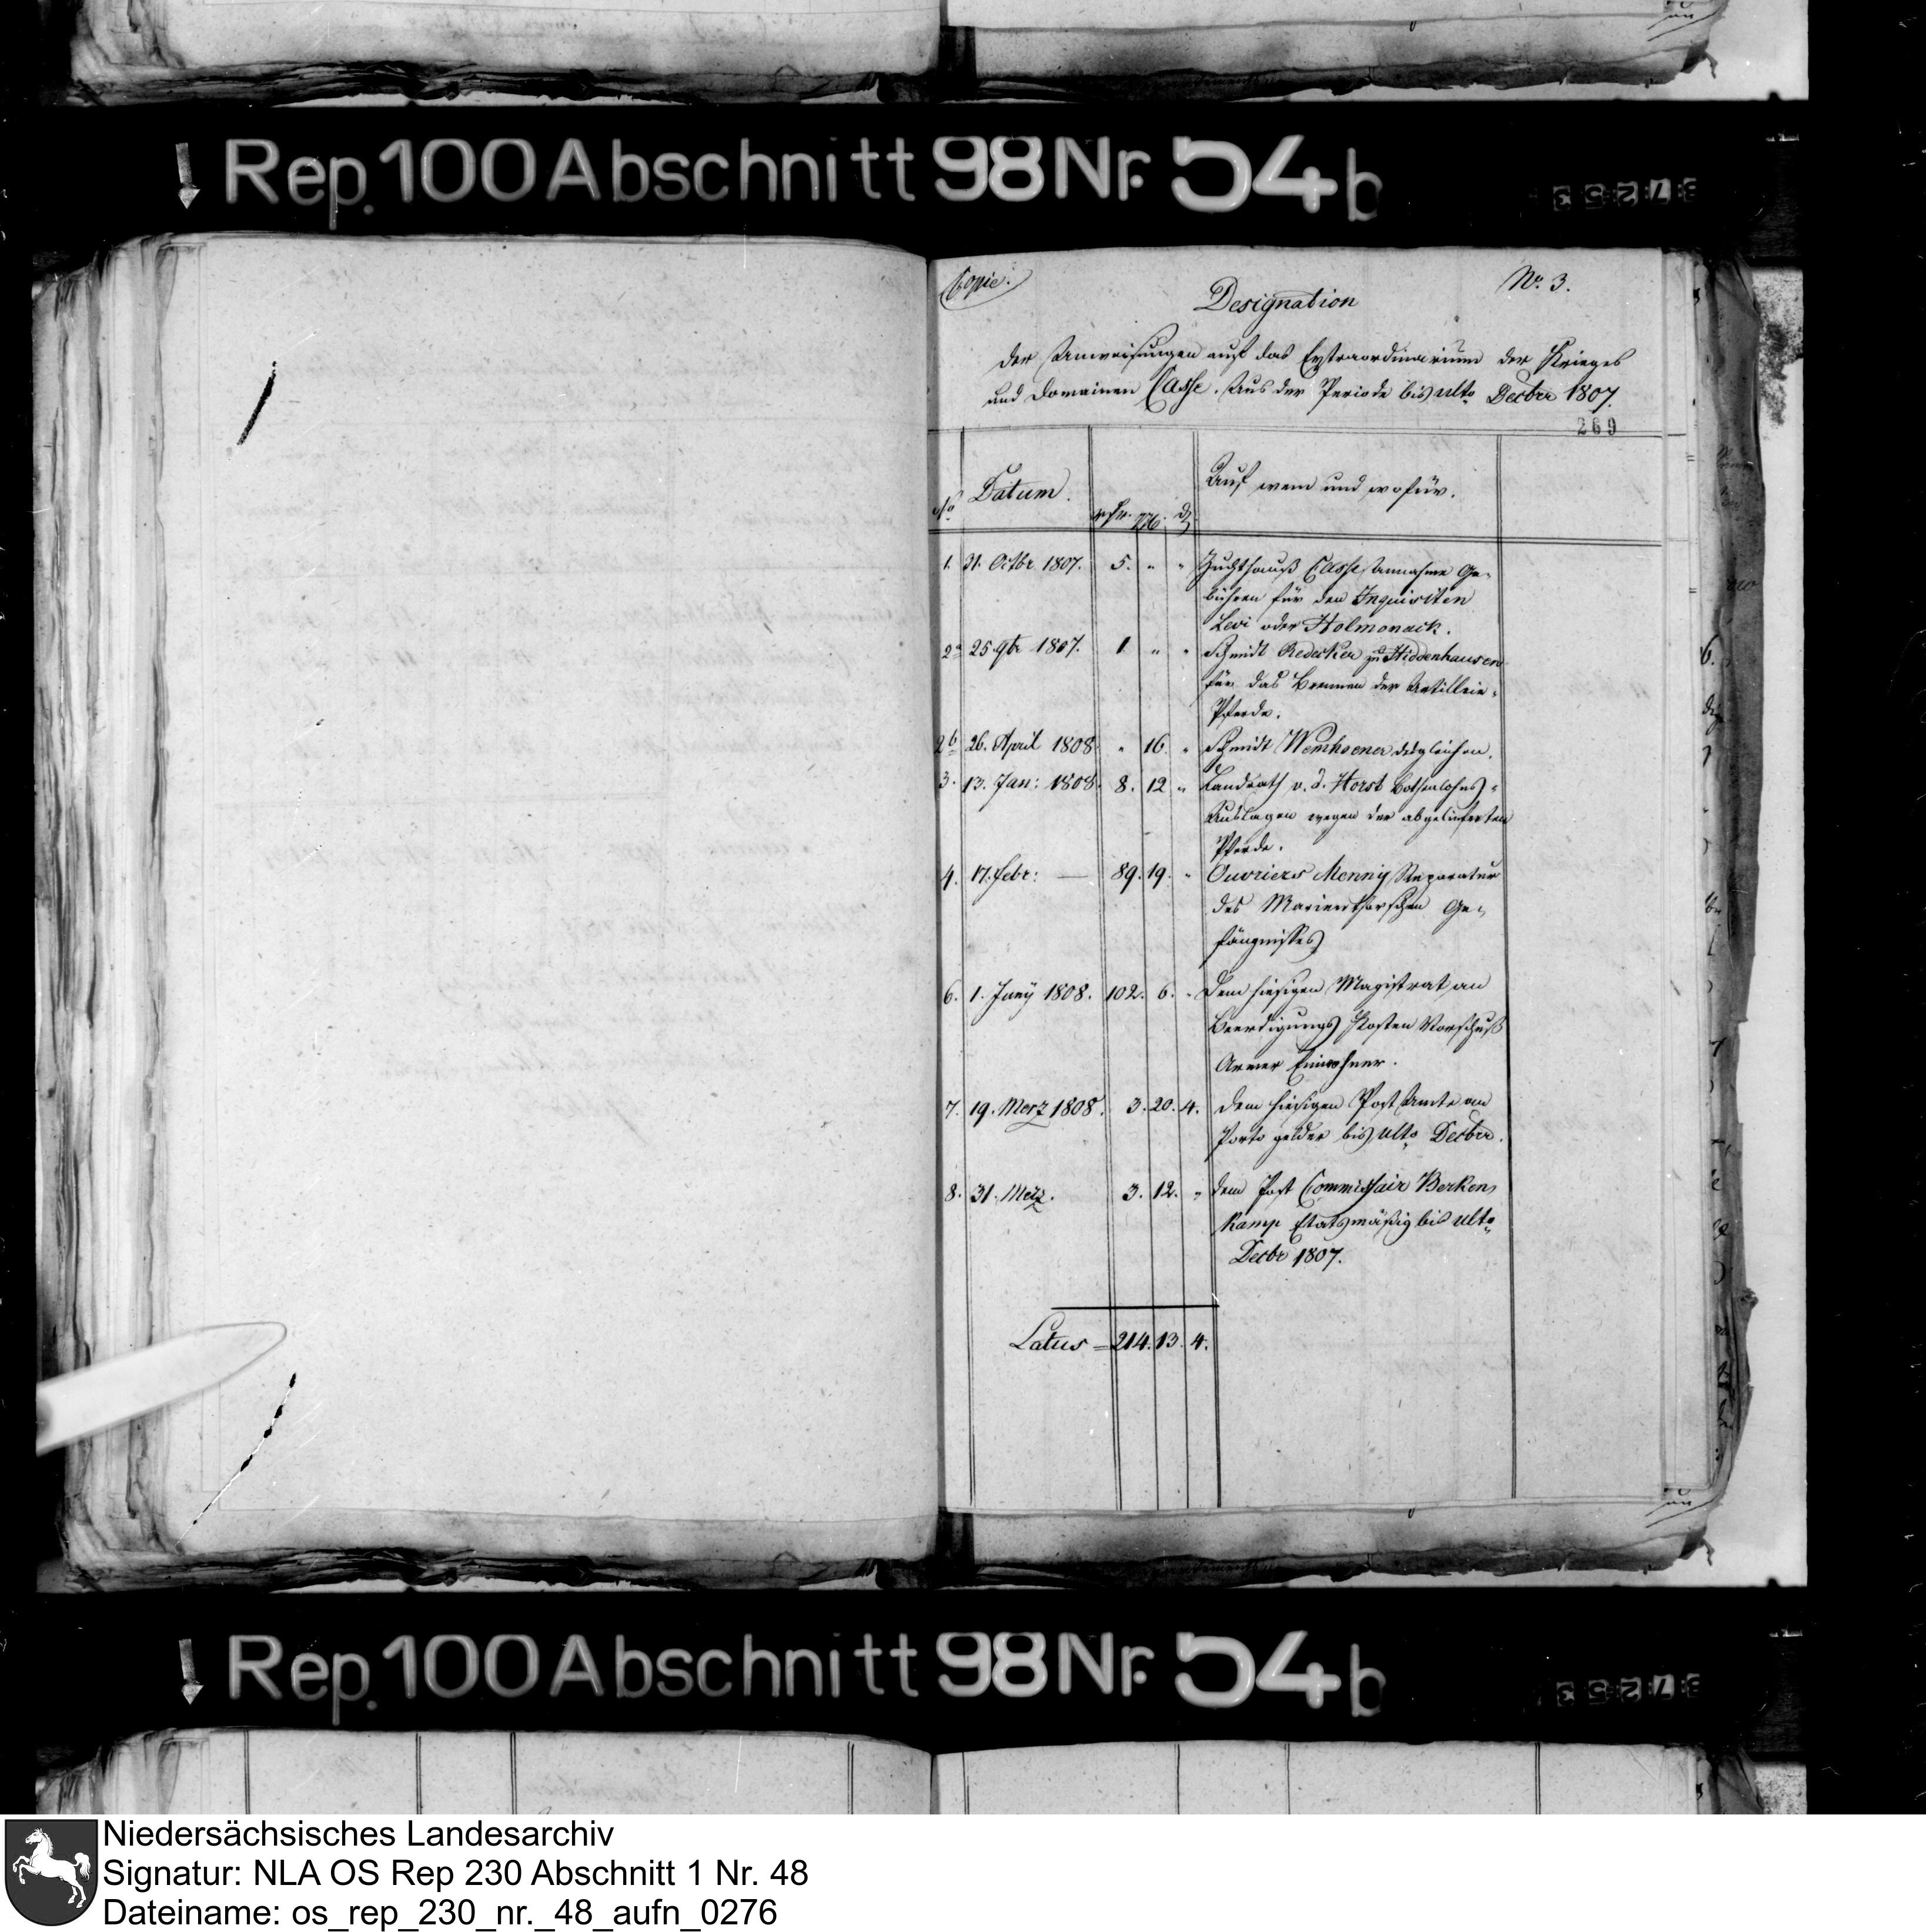 Rep. 100 Abschnitt 98 Nr. 54 b
Copie.
No. 3.
Designation
der Anweisungen auf das Extraordinarium der Krieges
und Domainen Casse. Aus der Periode bis ulto Decbr 1807.
269
No Datum. rthr. mg. d. Auf wem und wofür.
1. 31. Octbr 1807. 5. " " Zuchthauß Casse Annahme Ge-
bühren für den Inquisiten
Levi oder Holmonack.
2a 25. 9br 1807. 1. " " Schmidt Redecker zu Hiddenhausen
für das Brennen der Artillerie-
Pferde.
2b 26. April 1808. " 16. " Schmidt Wemhoener desgleichen.
3. 13. Jan: 1808. 8. 12 " Landrath v. d. Horst Bothenlohns-
Auslagen wegen der abgelieferten
Pferde.
4. 17. Febr: — 89. 19. " Ouvriers Menny Reparatur
des Marienthorschen Ge-
fängnisses
6. 1. Juny 1808. 102. 6. " Dem hiesigen Magistrat an
Beerdigungs Kosten Vorschuß
Armer Einwohner.
7. 19. Merz 1808. 3. 20. 4. dem hiesigen Post Amte an
Porto gelder bis ulto Decbr.
8. 31. Merz. 3. 12. " dem Post Commissair Berken
kamp Etatsmäßig bis ulto
Decbr 1807.
Latus = 214. 13. 4.
Rep. 100 Abschnitt 98 Nr. 54 b
Niedersächsisches Landesarchiv
Signatur: NLA OS Rep 230 Abschnitt 1 Nr. 48
Dateiname: os_rep_230_nr._48_aufn_0276